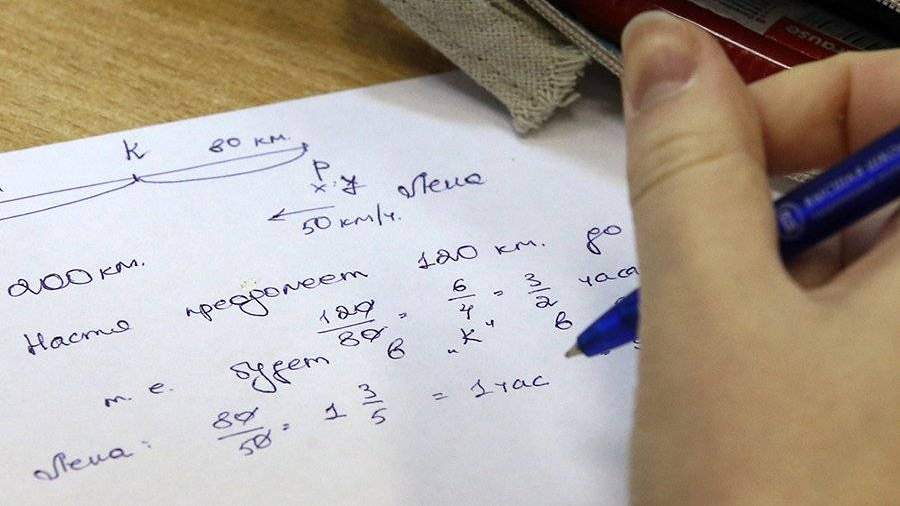 K 80 км.
P
x y Лена
50 км/ч.
200 км.
Настя предолеет 120 км. до
120/80 = 6/4 = 3/2 часа
т.е. будет в "К" в
Лена: 80/50 = 1 3/5 = 1 час